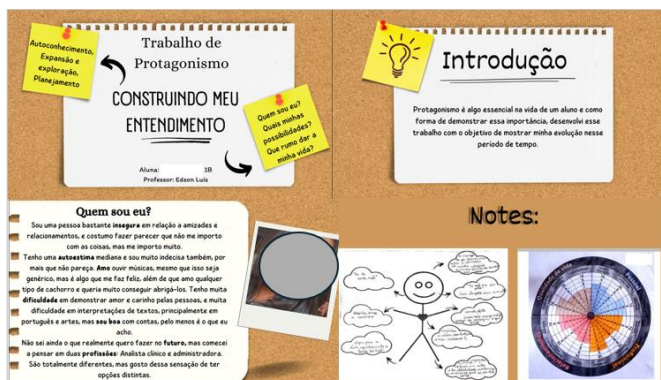 Autoconhecimento,
Expansão e
exploração,
Planejamento
Trabalho de
Protagonismo
CONSTRUINDO MEU
ENTENDIMENTO
Quem sou eu?
Quais minhas
possibilidades?
Que rumo dar a
minha vida?
Aluna: 1B
Professor: Edson Luis
Introdução
Protagonismo é algo essencial na vida de um aluno e como
forma de demonstrar essa importância, desenvolvi esse
trabalho com o objetivo de mostrar minha evolução nesse
período de tempo.
Quem sou eu?
Sou uma pessoa bastante insegura em relação a amizades e
relacionamentos, e costumo fazer parecer que não me importo
com as coisas, mas me importo muito.
Tenho uma autoestima mediana e sou muito indecisa também, por
mais que não pareça. Amo ouvir músicas, mesmo que isso seja
genérico, mas é algo que me faz feliz, além de que amo qualquer
tipo de cachorro e queria muito conseguir abrigá-los. Tenho muita
dificuldade em demonstrar amor e carinho pelas pessoas, e muita
dificuldade em interpretações de textos, principalmente em
português e artes, mas sou boa com contas, pelo menos é o que eu
acho.
Não sei ainda o que realmente quero fazer no futuro, mas comecei
a pensar em duas profissões: Analista clínico e administradora.
São totalmente diferentes, mas gosto dessa sensação de ter
opções distintas.
Notes:
Qualidade de vida
Pessoal
Profissional
Relacionamentos